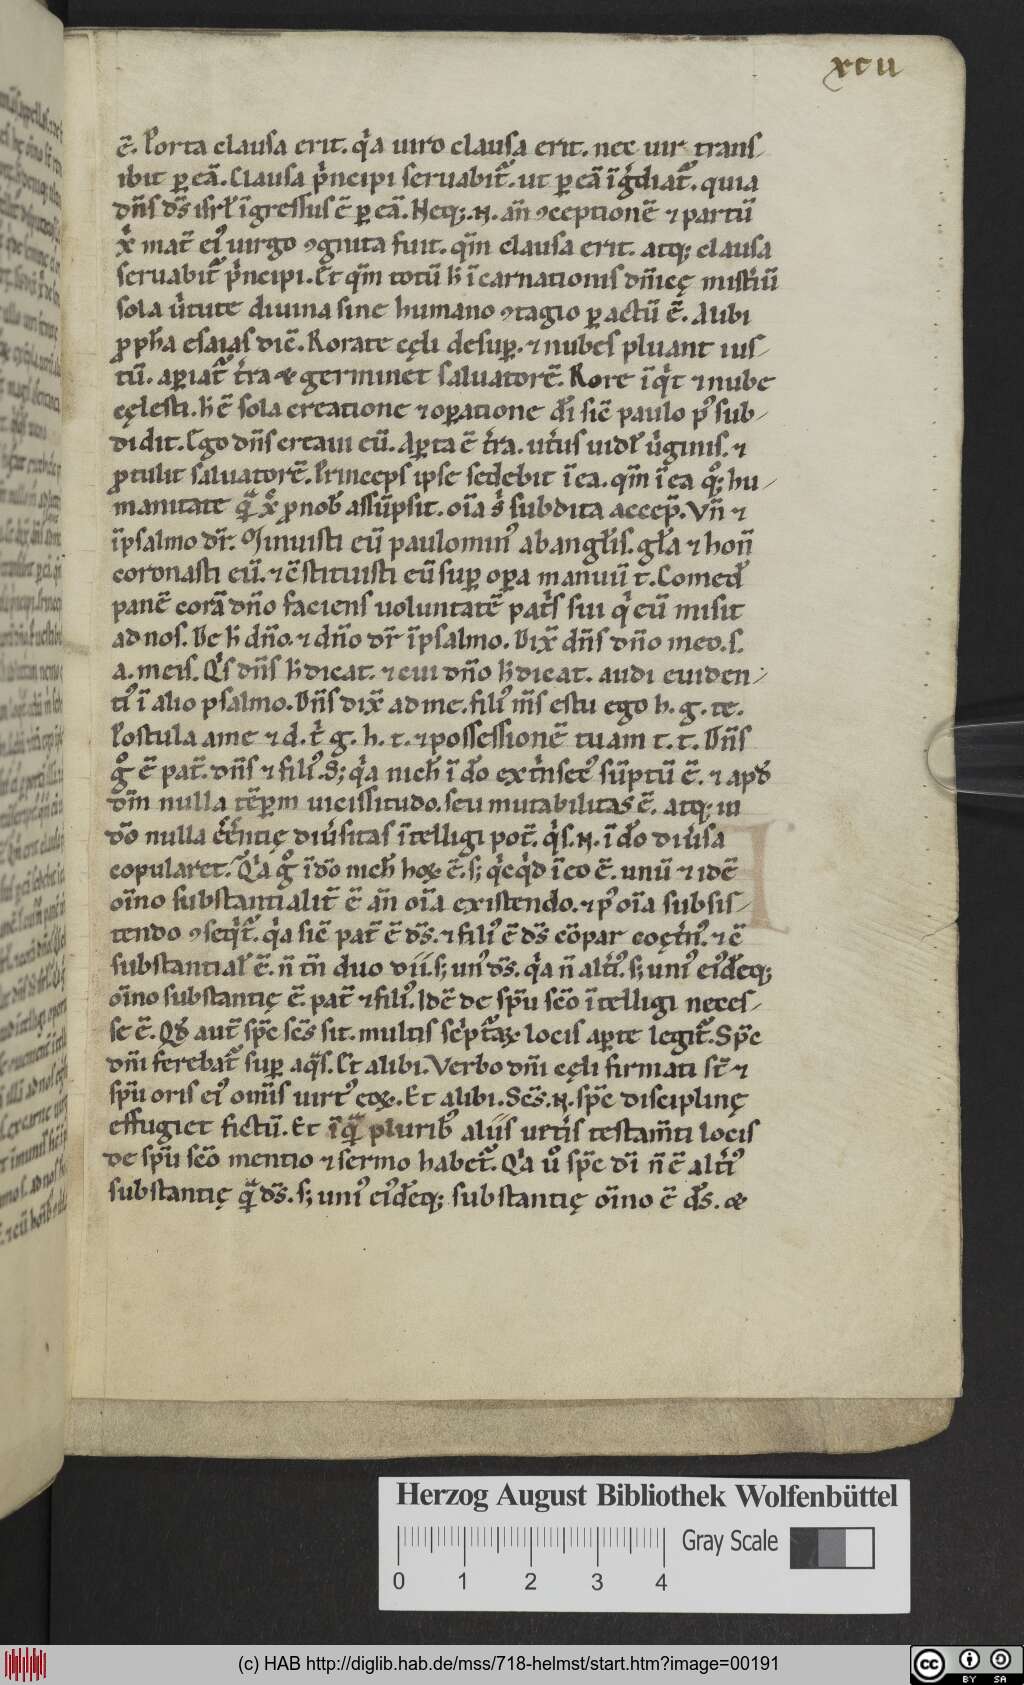 xcii
ē. Porta clausa erit. qͥa uiro clausa erit. nec uir trans-
ibit ꝑ eā. Clausa pͥncipi seruabit᷑. ut ꝑ eā īgͥdiat᷑. quia
dn̄s ds̄ isrl̄ īgressus ē ꝑ eā. Neq;. N. an̄ ꝯceptionē ⁊ partū
xͥ mat̄ eiꝰ uirgo ꝯgnita fuit. qm̄ clausa erit. atq; clausa
seruabit᷑ pͥncipi. Et qm̄ totū h̄ īcarnationis dn̄icę mistͥiū
sola uͥtute diuina sine humano ꝯtagio ꝑactū ē. Alibi
ꝓph̄a esaias dic̄. Rorate cęli desuꝑ. ⁊ nubes pluant ius-
tū. aꝑiat᷑ tͥra & germinet saluatorē. Rore īqͥt ⁊ nube
cęlesti. h̄ ē sola creatione ⁊ oꝑatione dī sic̄ paulo pꝰ sub-
didit. Ego dn̄s creaui eū. Aꝑta ē tͥra. utͥus uidꝉ uͥginis. ⁊
ꝓtulit saluatorē. Princeps ipse sedebit ī ea. qm̄ ī ea qͦ; hu-
manitate qᷓ xͦ ꝓ nob̄ assūpsit. oīa sͥ subdita accep̄. Vn̄ ⁊
īpsalmo dr̄. Minuisti eū paulominꝰ ab angl̄is. gl̄a ⁊ hon̄
coronasti eū. ⁊ ꝯstituisti eū suꝑ oꝑa manuū t. Comed̄
panē corā dn̄o faciens uoluntatē patͥs sui qͥ eū misit
ad nos. De h̄ dn̄o. ⁊ dn̄o dr̄ īpsalmo. Dix̄ dn̄s dn̄o meo. s.
a. meis. Qͥs dn̄s h̄ dicat. ⁊ cui dn̄o h̄ dicat. audi euiden-
tiꝰ ī alio psalmo. Dn̄s dix̄ ad me. filiꝰ m̄s es tu ego h. g. te.
Postula a me ⁊ d. tͥ g. h. t. ⁊ possessionē tuam t. t. Dn̄s
gͦ ē pat̄. dn̄s ⁊ filiꝰ. S; qͥa nich̄ ī do̅ extͥnsecꝰ sūptū ē. ⁊ apd̄
dm̄ nulla tēꝑm uicissitudo. seu mutabilitas ē. atq; in
do̅ nulla ēēntię diuͥsitas ītelligi pot̄. qͥs. N. ī do̅ diuͥsa
copularet. Qͥa gͦ ī do̅ nich̄ hoꝝ ē. s; qͥcqͥd ī eo ē. unū ⁊ idē
oīno substantialit̄ ē an̄ oīa existendo. ⁊ pꝰ oīa subsis-
tendo ꝯseqͥt᷑. qͥa sic̄ pat̄ ē ds̄. ⁊ filiꝰ ē ds̄ cōpar coętͥnꝰ. ⁊ ē
substantial̄ ē. n̄ tn̄ duo dii. s; unꝰ ds̄. qͥa n̄ altͥꝰ. s; uniꝰ eiꝰdēq;
oīno substantię ē. pat̄ ⁊ filiꝰ. Idē de spū sc̄o ītelligi neces-
se ē. Qd̄ aut̄ spc̄ sc̄s sit. multis scͥptᷓaꝝ locis aꝑte legit᷑. Spc̄
dn̄i ferebat᷑ suꝑ aqᷓs. Et alibi. Verbo dn̄i cęli firmati st̄ ⁊
spū oris eiꝰ om̄is uirtꝰ eoꝝ. Et alibi. Sc̄s. N. spc̄ disciplinę
effugiet fictū. Et īqᷓ plurib̄ aliis utͥis testam̄ti locis
de spū sc̄o mentio ⁊ sermo habet᷑. Qͥa uͦ spc̄ dī n̄ ē altͥiꝰ
substantię qᷓ ds̄. s; uniꝰ eiꝰdēq; substantię oīno ē ds̄. &
Herzog August Bibliothek Wolfenbüttel
Gray Scale
0 1 2 3 4
(c) HAB http://diglib.hab.de/mss/718-helmst/start.htm?image=00191
cc BY SA